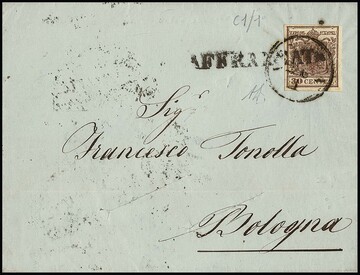 C1/1
AFFRANCATA
30 CENT.
Sig.
Francesco Tonolla
Bologna